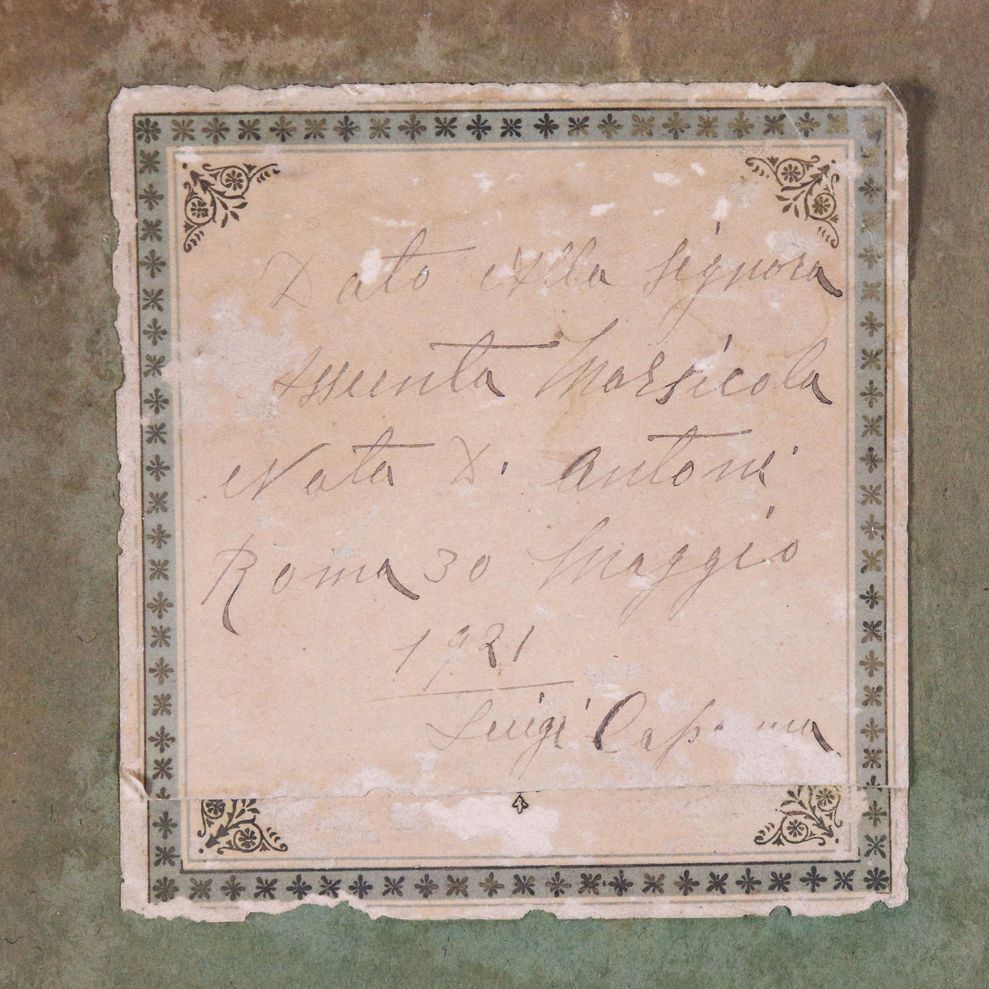 Dato Alla Signora
Assunta Marsicola
Nata Di Antoni
Roma 30 Maggio
1921
Luigi